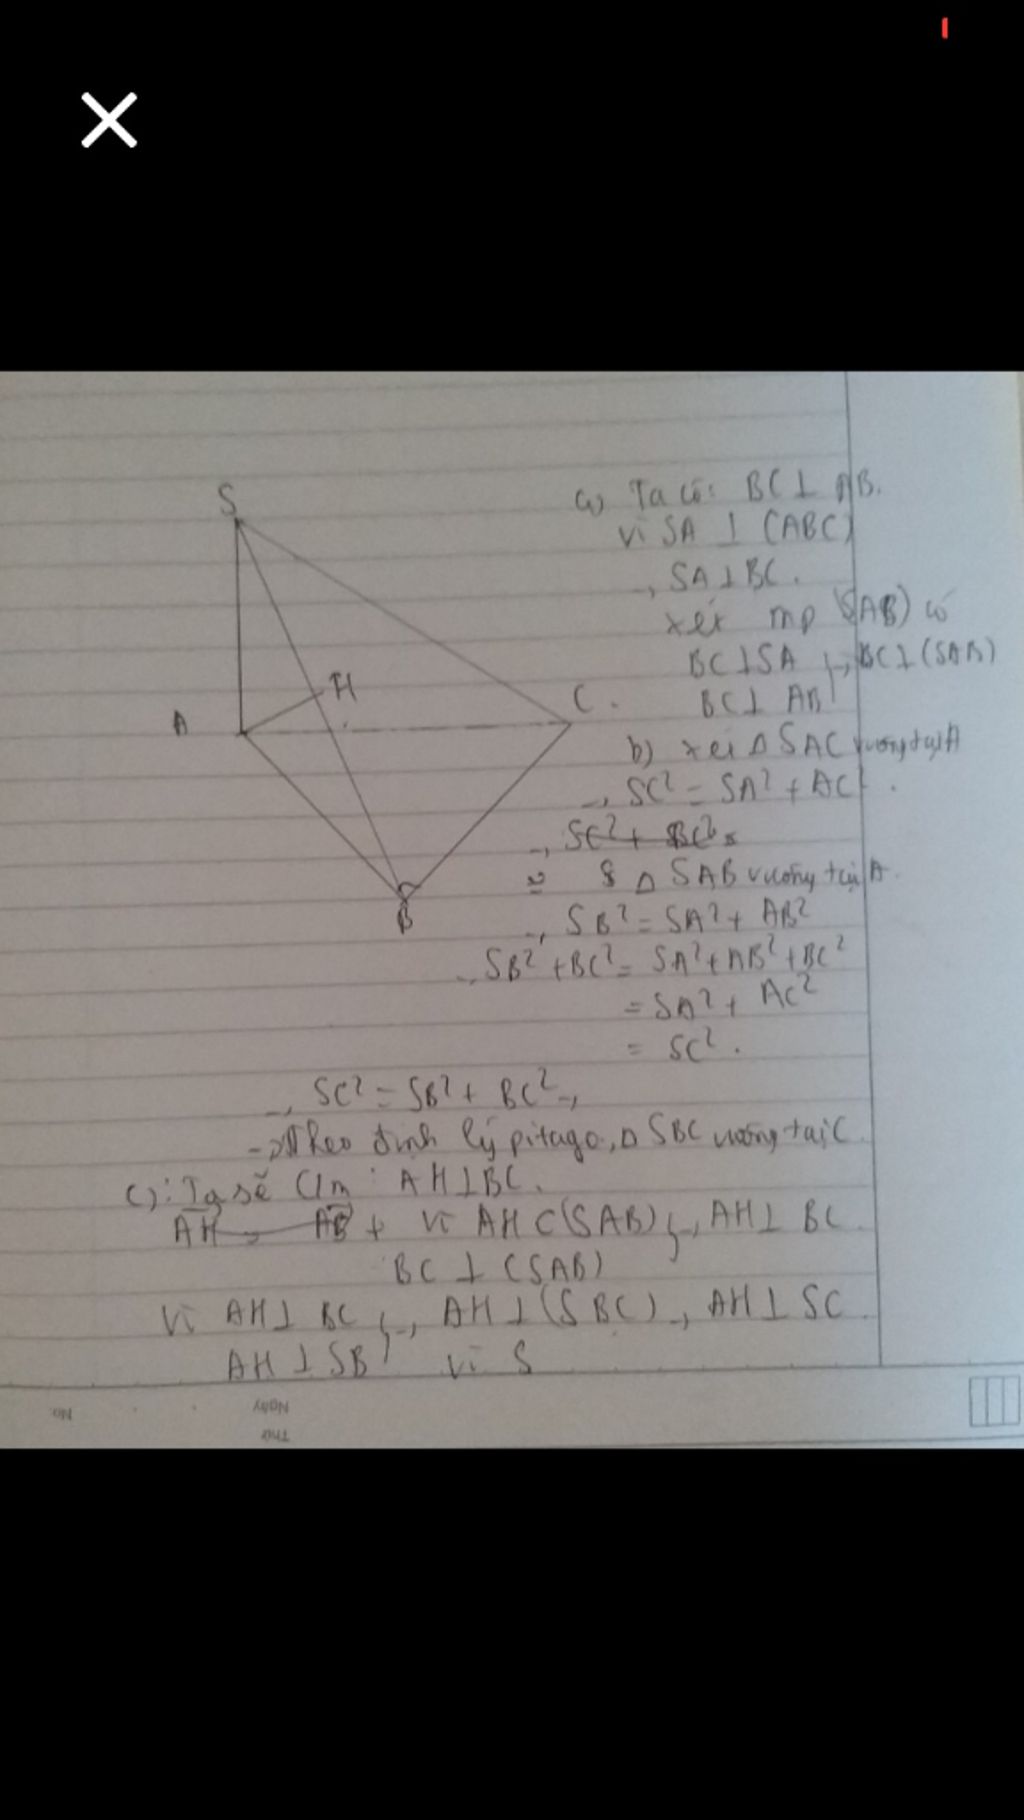 S
A
H
C.
B
a) Ta có: BC ⊥ AB.
vì SA ⊥ (ABC)
→ SA ⊥ BC.
xét mp (SAB) có
BC ⊥ SA } → BC ⊥ (SAB)
BC ⊥ AB
b) xét Δ SAC vuông tại A
→ SC² = SA² + AC².
→ SC² + BC² =
Δ SAB vuông tại A.
→ SB² = SA² + AB²
→ SB² + BC² = SA² + AB² + BC²
= SA² + AC²
= SC².
→ SC² = SB² + BC² →
→ Theo định lý pitago, Δ SBC vuông tại C
c): Ta sẽ C/m: AH ⊥ BC.
AH = AB + vì AH ⊂ (SAB) } → AH ⊥ BC
BC ⊥ (SAB)
Vì AH ⊥ BC } → AH ⊥ (SBC) → AH ⊥ SC
AH ⊥ SB vì S
No.
Ngày
Thứ